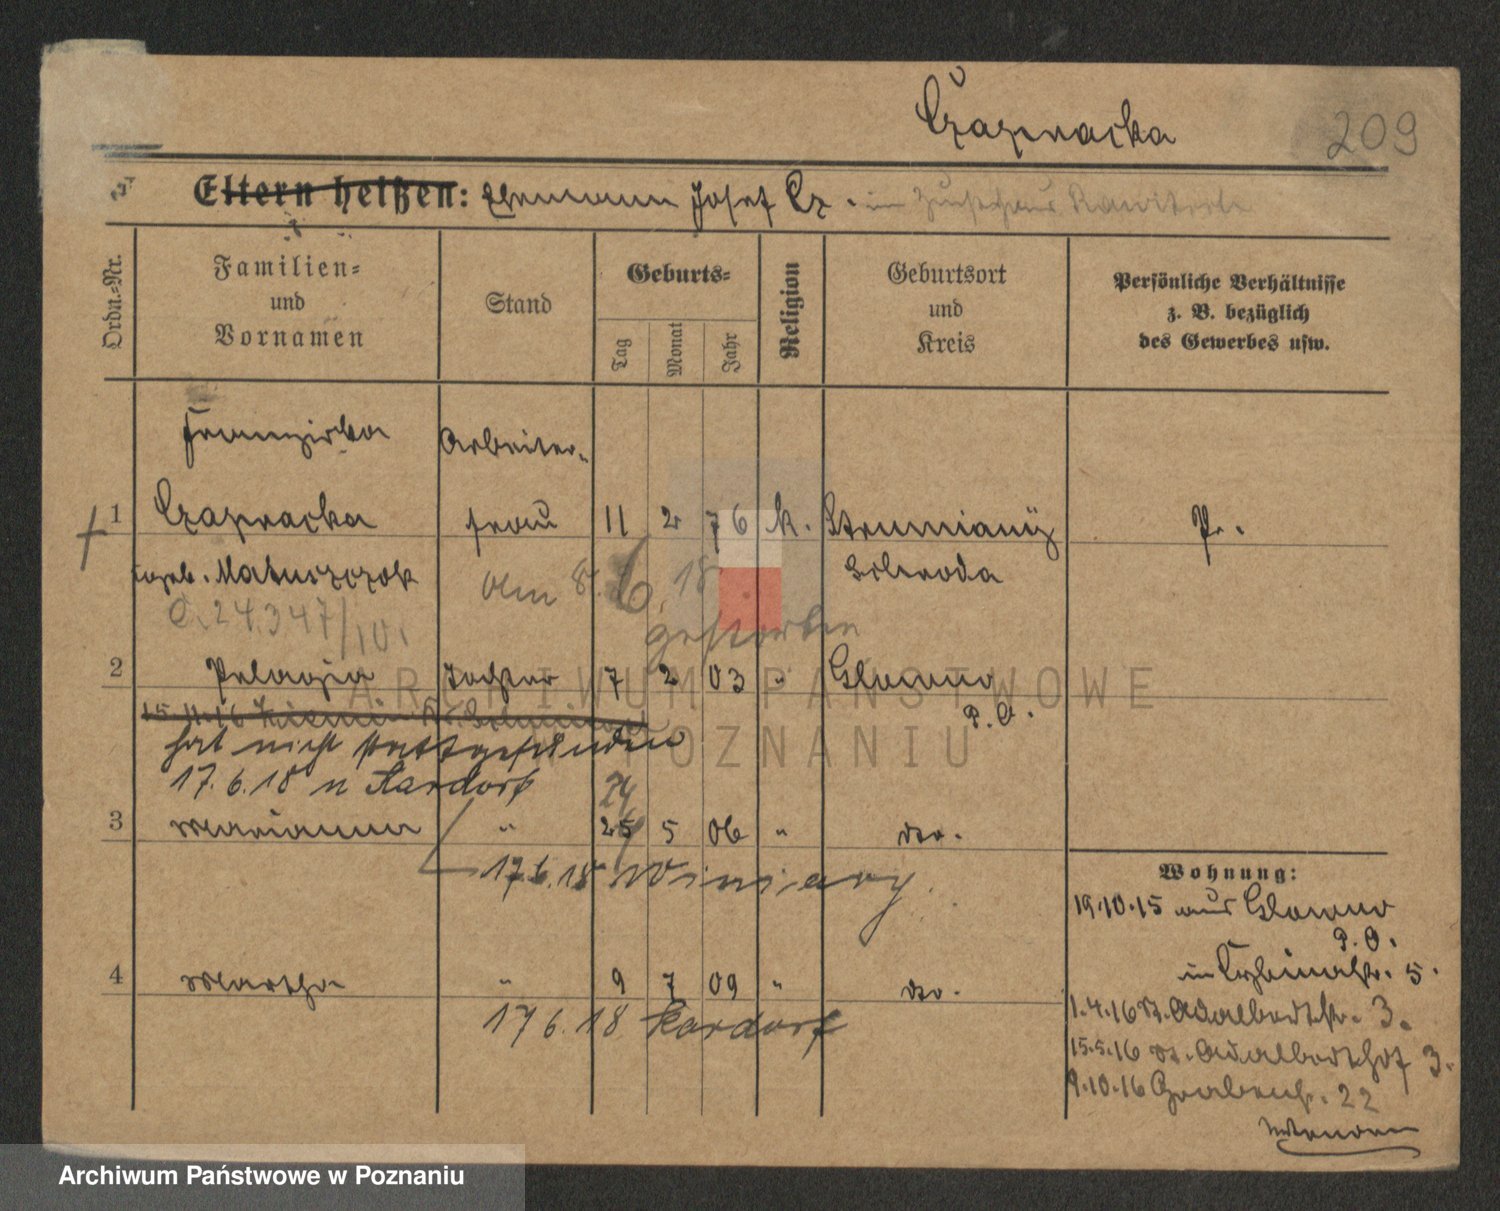 Czapracka
209
Eltern heißen: Ehemann Josef Cz. im Zuchthaus Rawitsch
Ordn.-Nr.
Familien-
und
Vornamen
Stand
Geburts-
Tag
Monat
Jahr
Religion
Geburtsort
und
Kreis
Persönliche Verhältnisse
z. B. bezüglich
des Gewerbes usw.
Franziska Arbeiter-
1 Czapracka frau 11 2 76 k. Strumiany Pr.
geb. Matuszczak Schroda
am 8.6.18
C. 24347/10.
gestorben
2 Pelagia Tochter 7 2 03 " Glowno
15.11.16
P.O.
hat nicht stattgefunden
17.6.18 n Kardorf
24
3 Marianna " 25 5 06 " dto.
17.6.18 Winiary
4 Martha " 9 7 09 " dto.
17 6.18 Kardorf
Wohnung:
19.10.15 aus Glowno
P.O.
in 5.
1.4.16 St. Adalbertstr. 3.
15.5.16 St. Adalberthof 3.
9.10.16 Grabenstr. 22
Wenden
ARCHIWUM PAŃSTWOWE
W POZNANIU
Archiwum Państwowe w Poznaniu